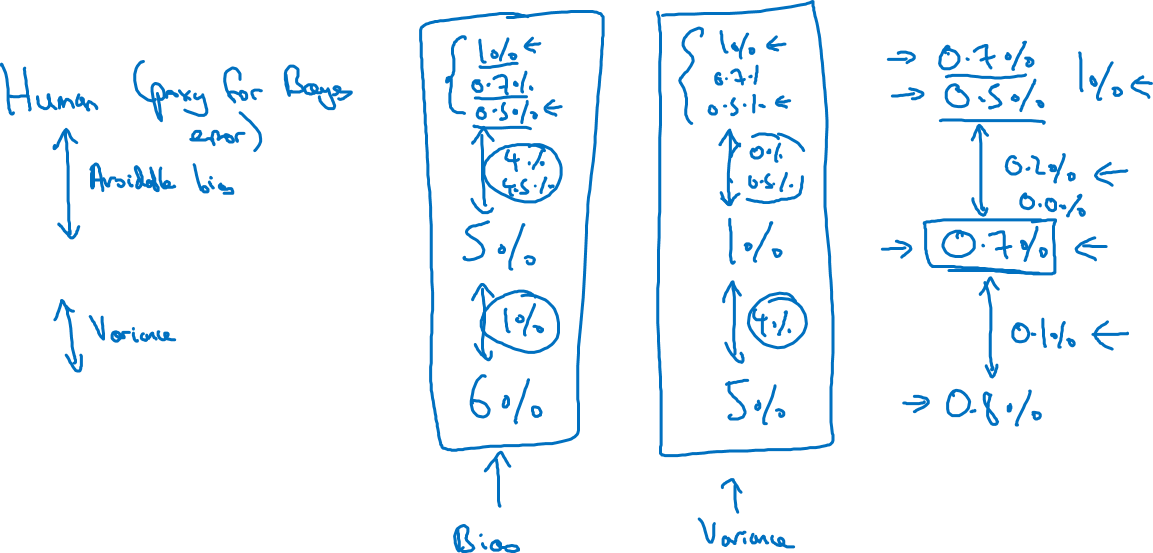 Human (proxy for Bayes
error)
Avoidable bias
Variance
1%
0.7%
0.5%
4%
4.5%
5%
1%
6%
Bias
1%
0.7%
0.5%
0%
0.5%
1%
4%
5%
Variance
0.7%
1%
0.5%
0.2%
0.0%
0.7%
0.1%
0.8%